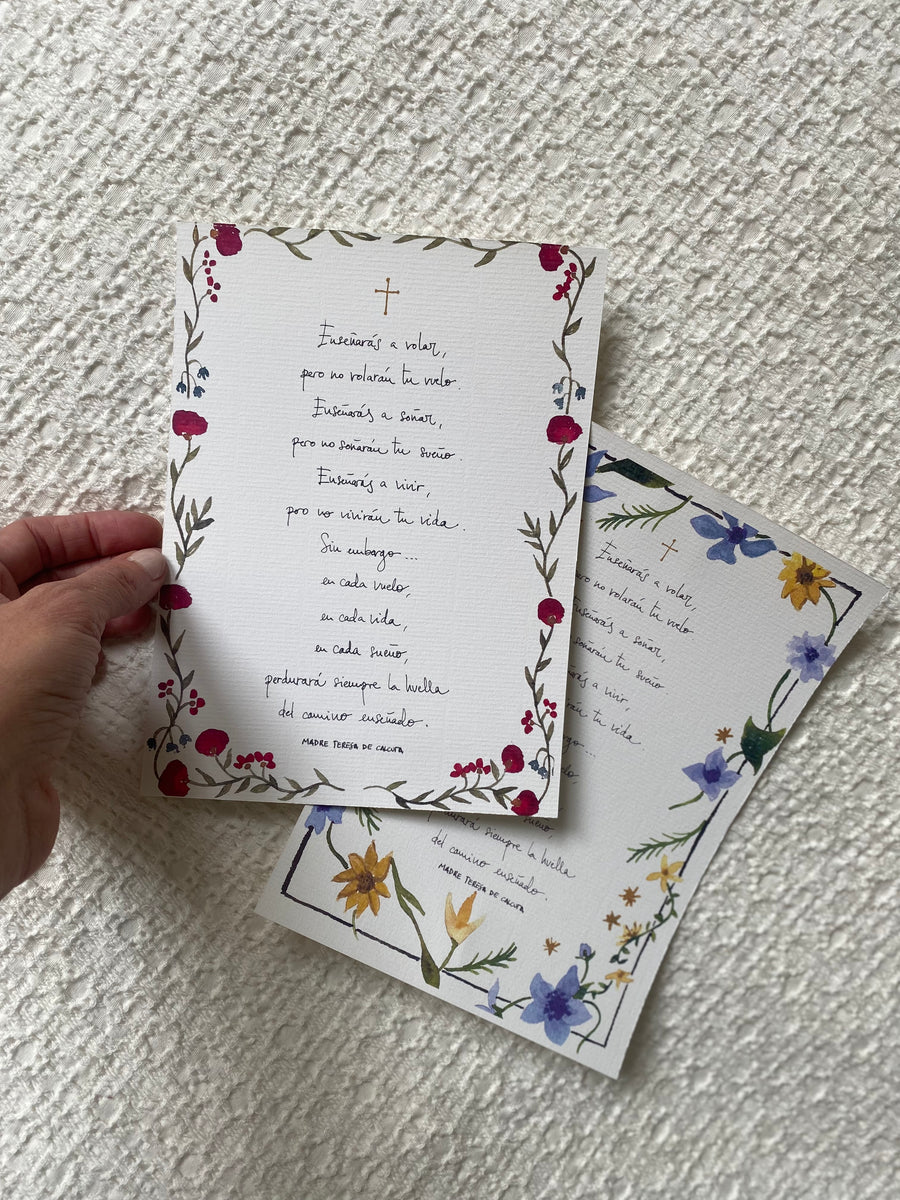 Enseñarás a volar,
pero no volarán tu vuelo.
Enseñarás a soñar,
pero no soñarán tu sueño.
Enseñarás a vivir,
pero no vivirán tu vida.
Sin embargo...
en cada vuelo,
en cada vida,
en cada sueño,
perdurará siempre la huella
del camino enseñado.
MADRE TERESA DE CALCUTA
Enseñarás a volar,
no volarán tu vuelo
Enseñarás a soñar,
soñarán tu sueño
a vivir,
tu vida
siempre la huella
del camino enseñado.
MADRE TERESA DE CALCUTA